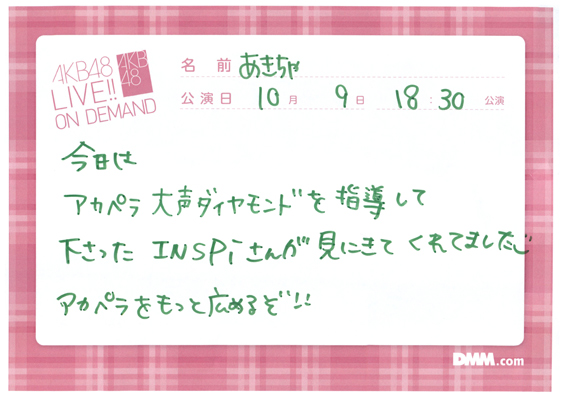 AKB48
LIVE!!
ON DEMAND
AKB
48
名前 あきちゃ
公演日 10月 9日 18:30 公演
今日は
アカペラ大声ダイヤモンドを指導して
下さった INSPiさんが見にきてくれてました
アカペラをもっと広めるぞ!!
DMM.com